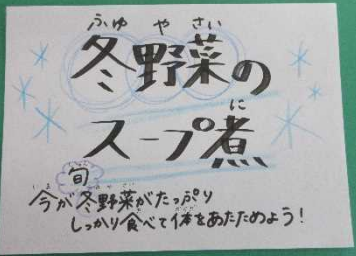 ふゆ や さい
冬野菜の
に
スープ煮
旬
今が冬野菜がたっぷり
しっかり食べて体をあたためよう!